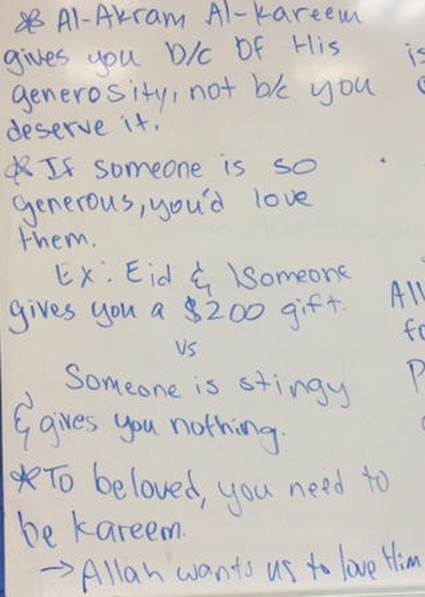 * Al-Akram Al-Kareem
gives you b/c of His
generosity, not b/c you
deserve it.
* If someone is so
generous, you'd love
them.
Ex: Eid & Someone
gives you a $200 gift.
vs
Someone is stingy
& gives you nothing.
* To beloved, you need to
be kareem.
→ Allah wants us to love Him
is
All
fr
P